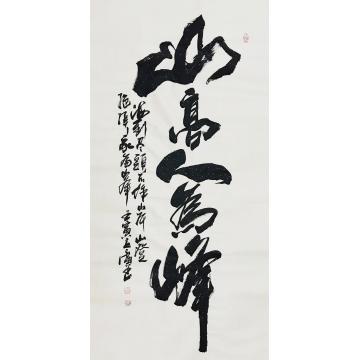 山高人為峰
海到尽頭天作岸山登
絶頂我為峰壬寅